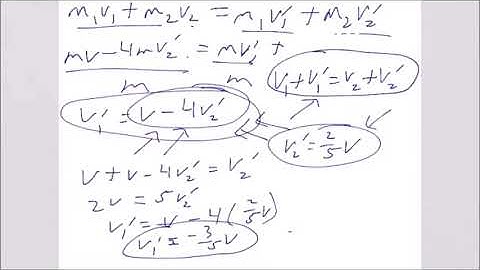 m₁v₁ + m₂v₂ = m₁v₁' + m₂v₂'
mv - 4mv₂' = mv₁' +
m m
v₁ + v₁' = v₂ + v₂'
v₁' = v - 4v₂'
v₂' = 2/5 v
v + v - 4v₂' = v₂'
2v = 5v₂'
v₁' = v - 4(2/5 v)
v₁' = -3/5 v